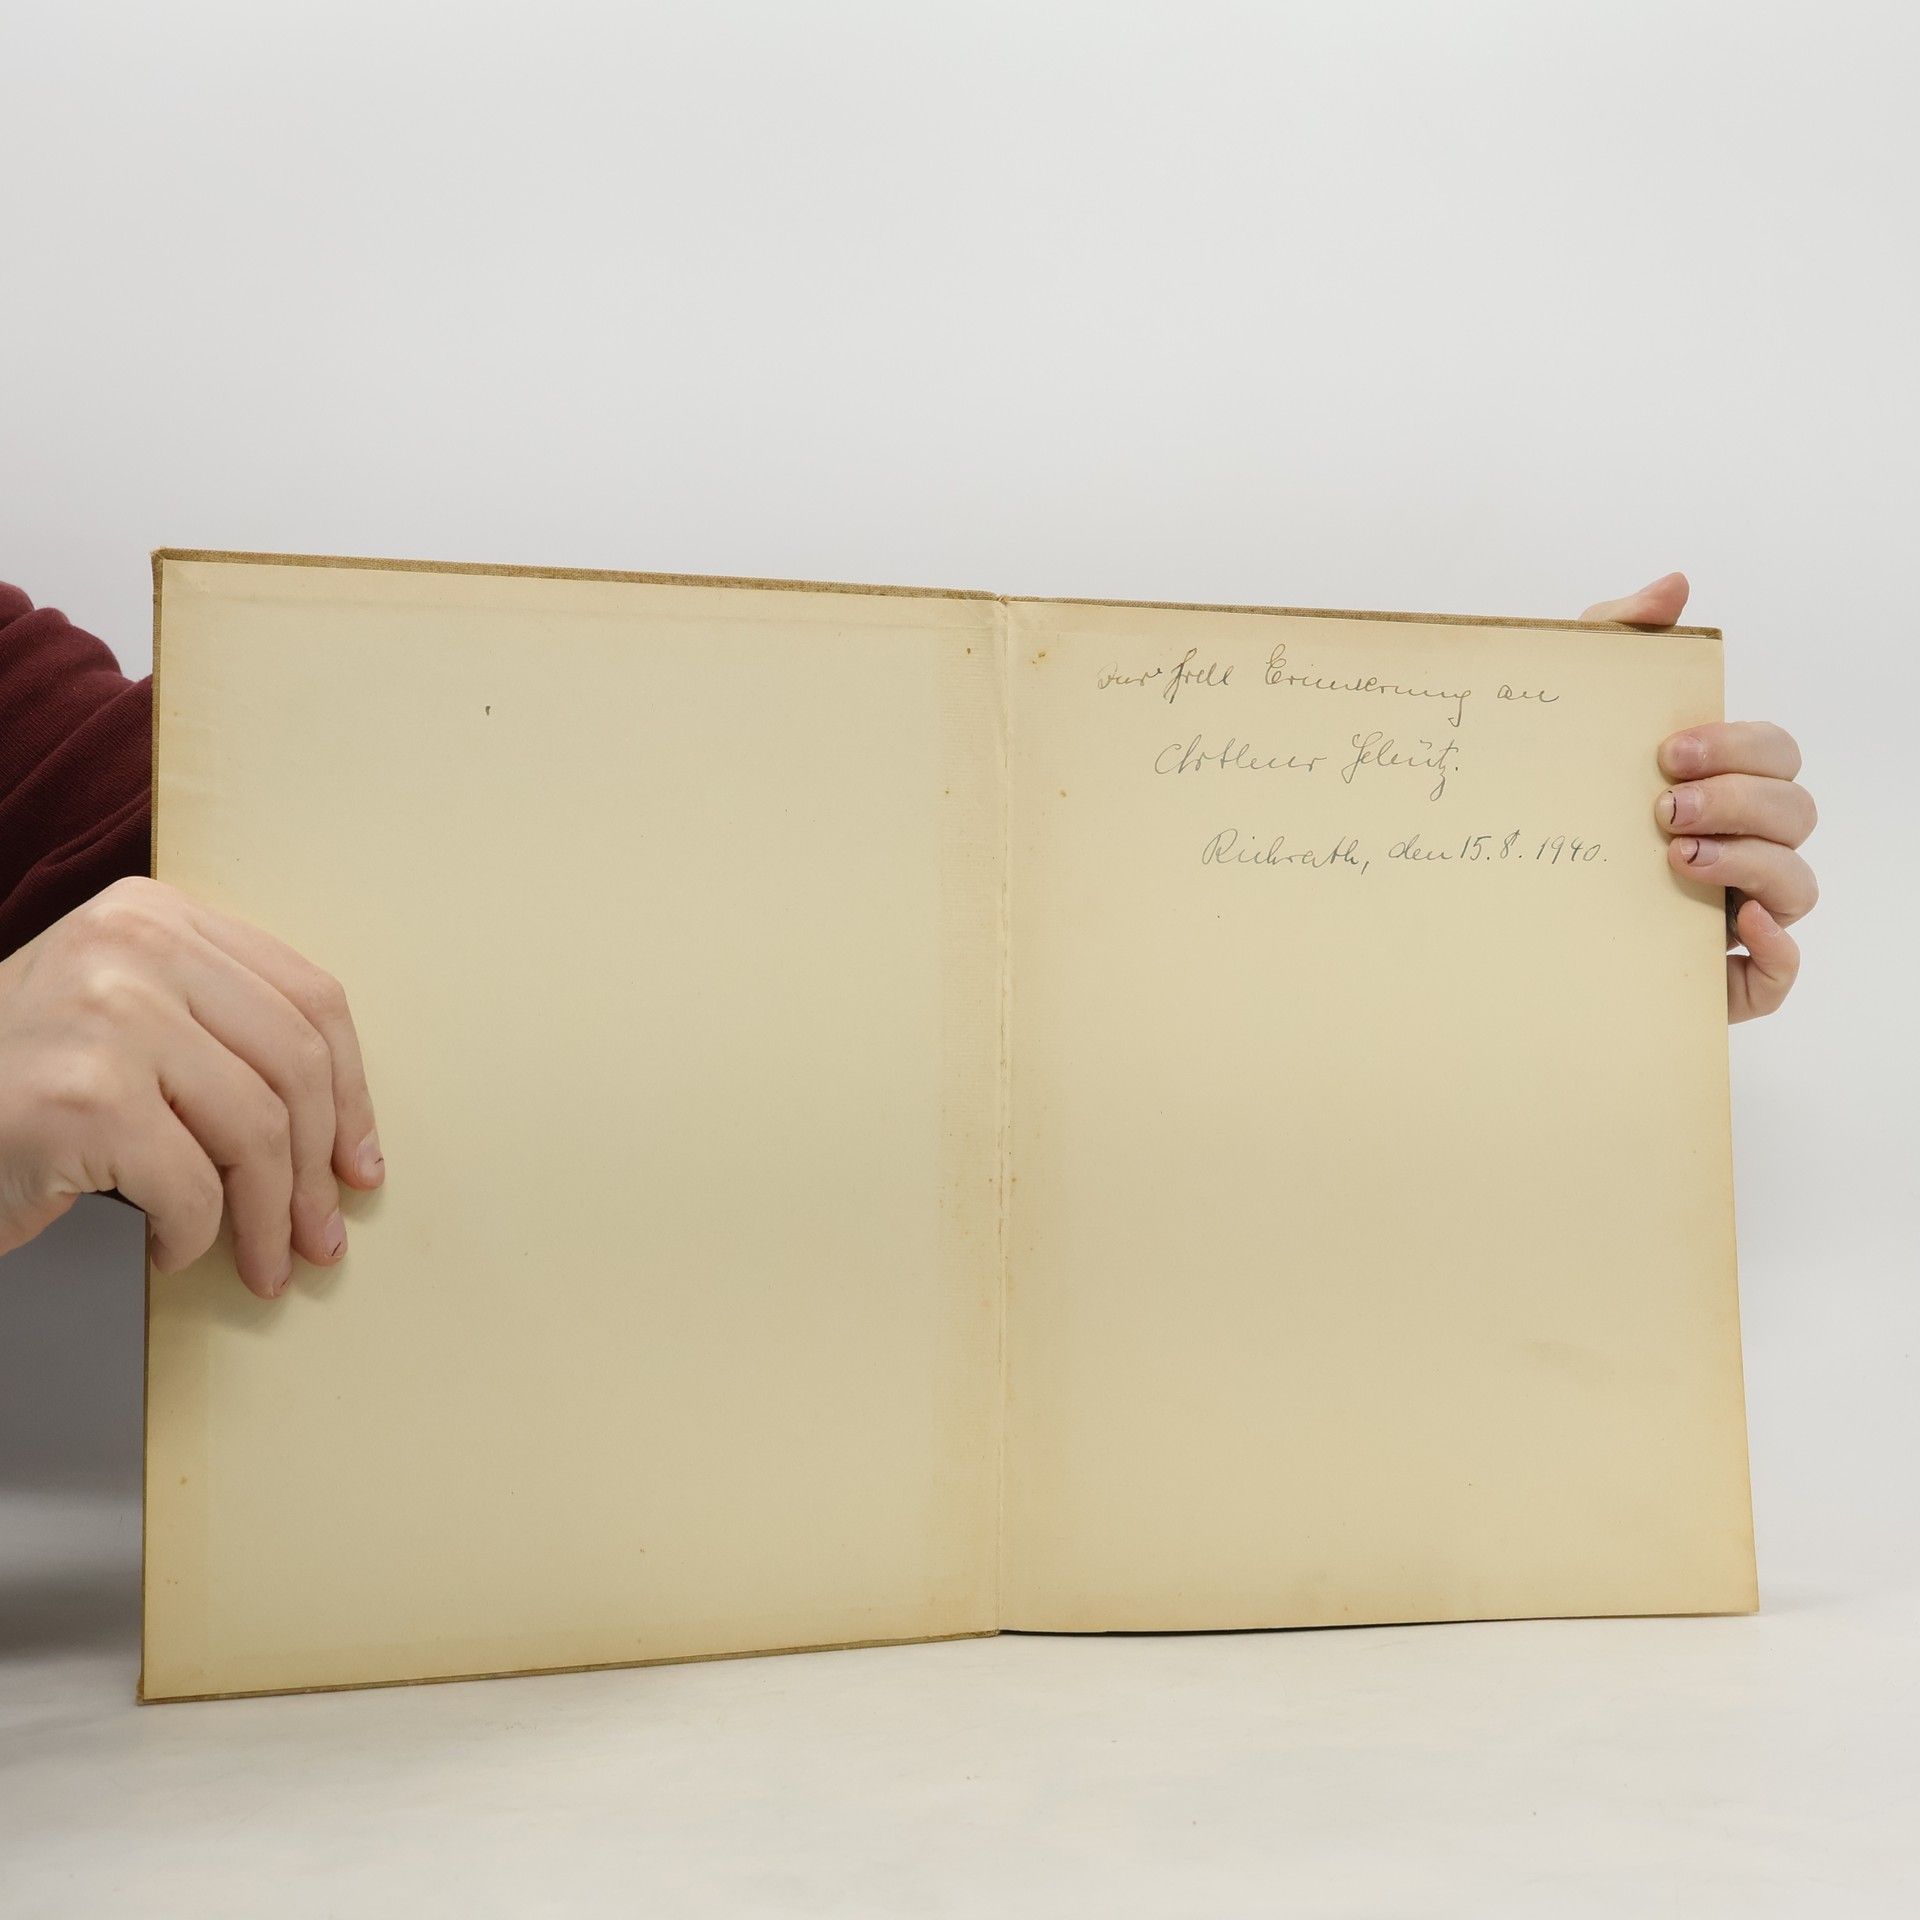 Zur frdl Erinnerung an
Arthur Schütz.
Richrath, den 15. 8. 1940.